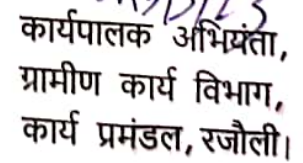 कार्यपालक अभियंता,
ग्रामीण कार्य विभाग,
कार्य प्रमंडल, रजौली।